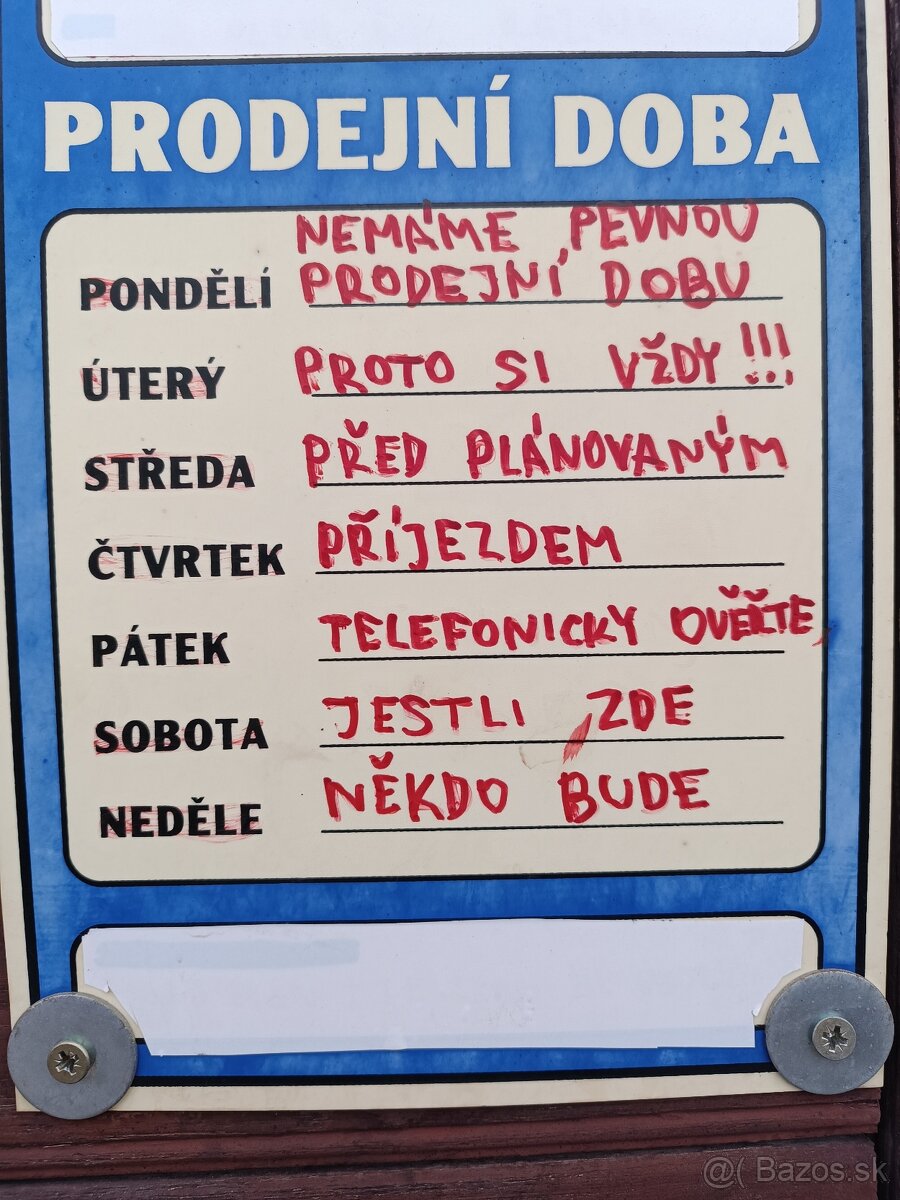 PRODEJNÍ DOBA
NEMÁME PEVNOU
PONDĚLÍ PRODEJNÍ DOBU
ÚTERÝ PROTO SI VŽDY !!!
STŘEDA PŘED PLÁNOVANÝM
ČTVRTEK PŘÍJEZDEM
PÁTEK TELEFONICKY OVĚŘTE,
SOBOTA JESTLI ZDE
NEDĚLE NĚKDO BUDE
@( Bazos.sk